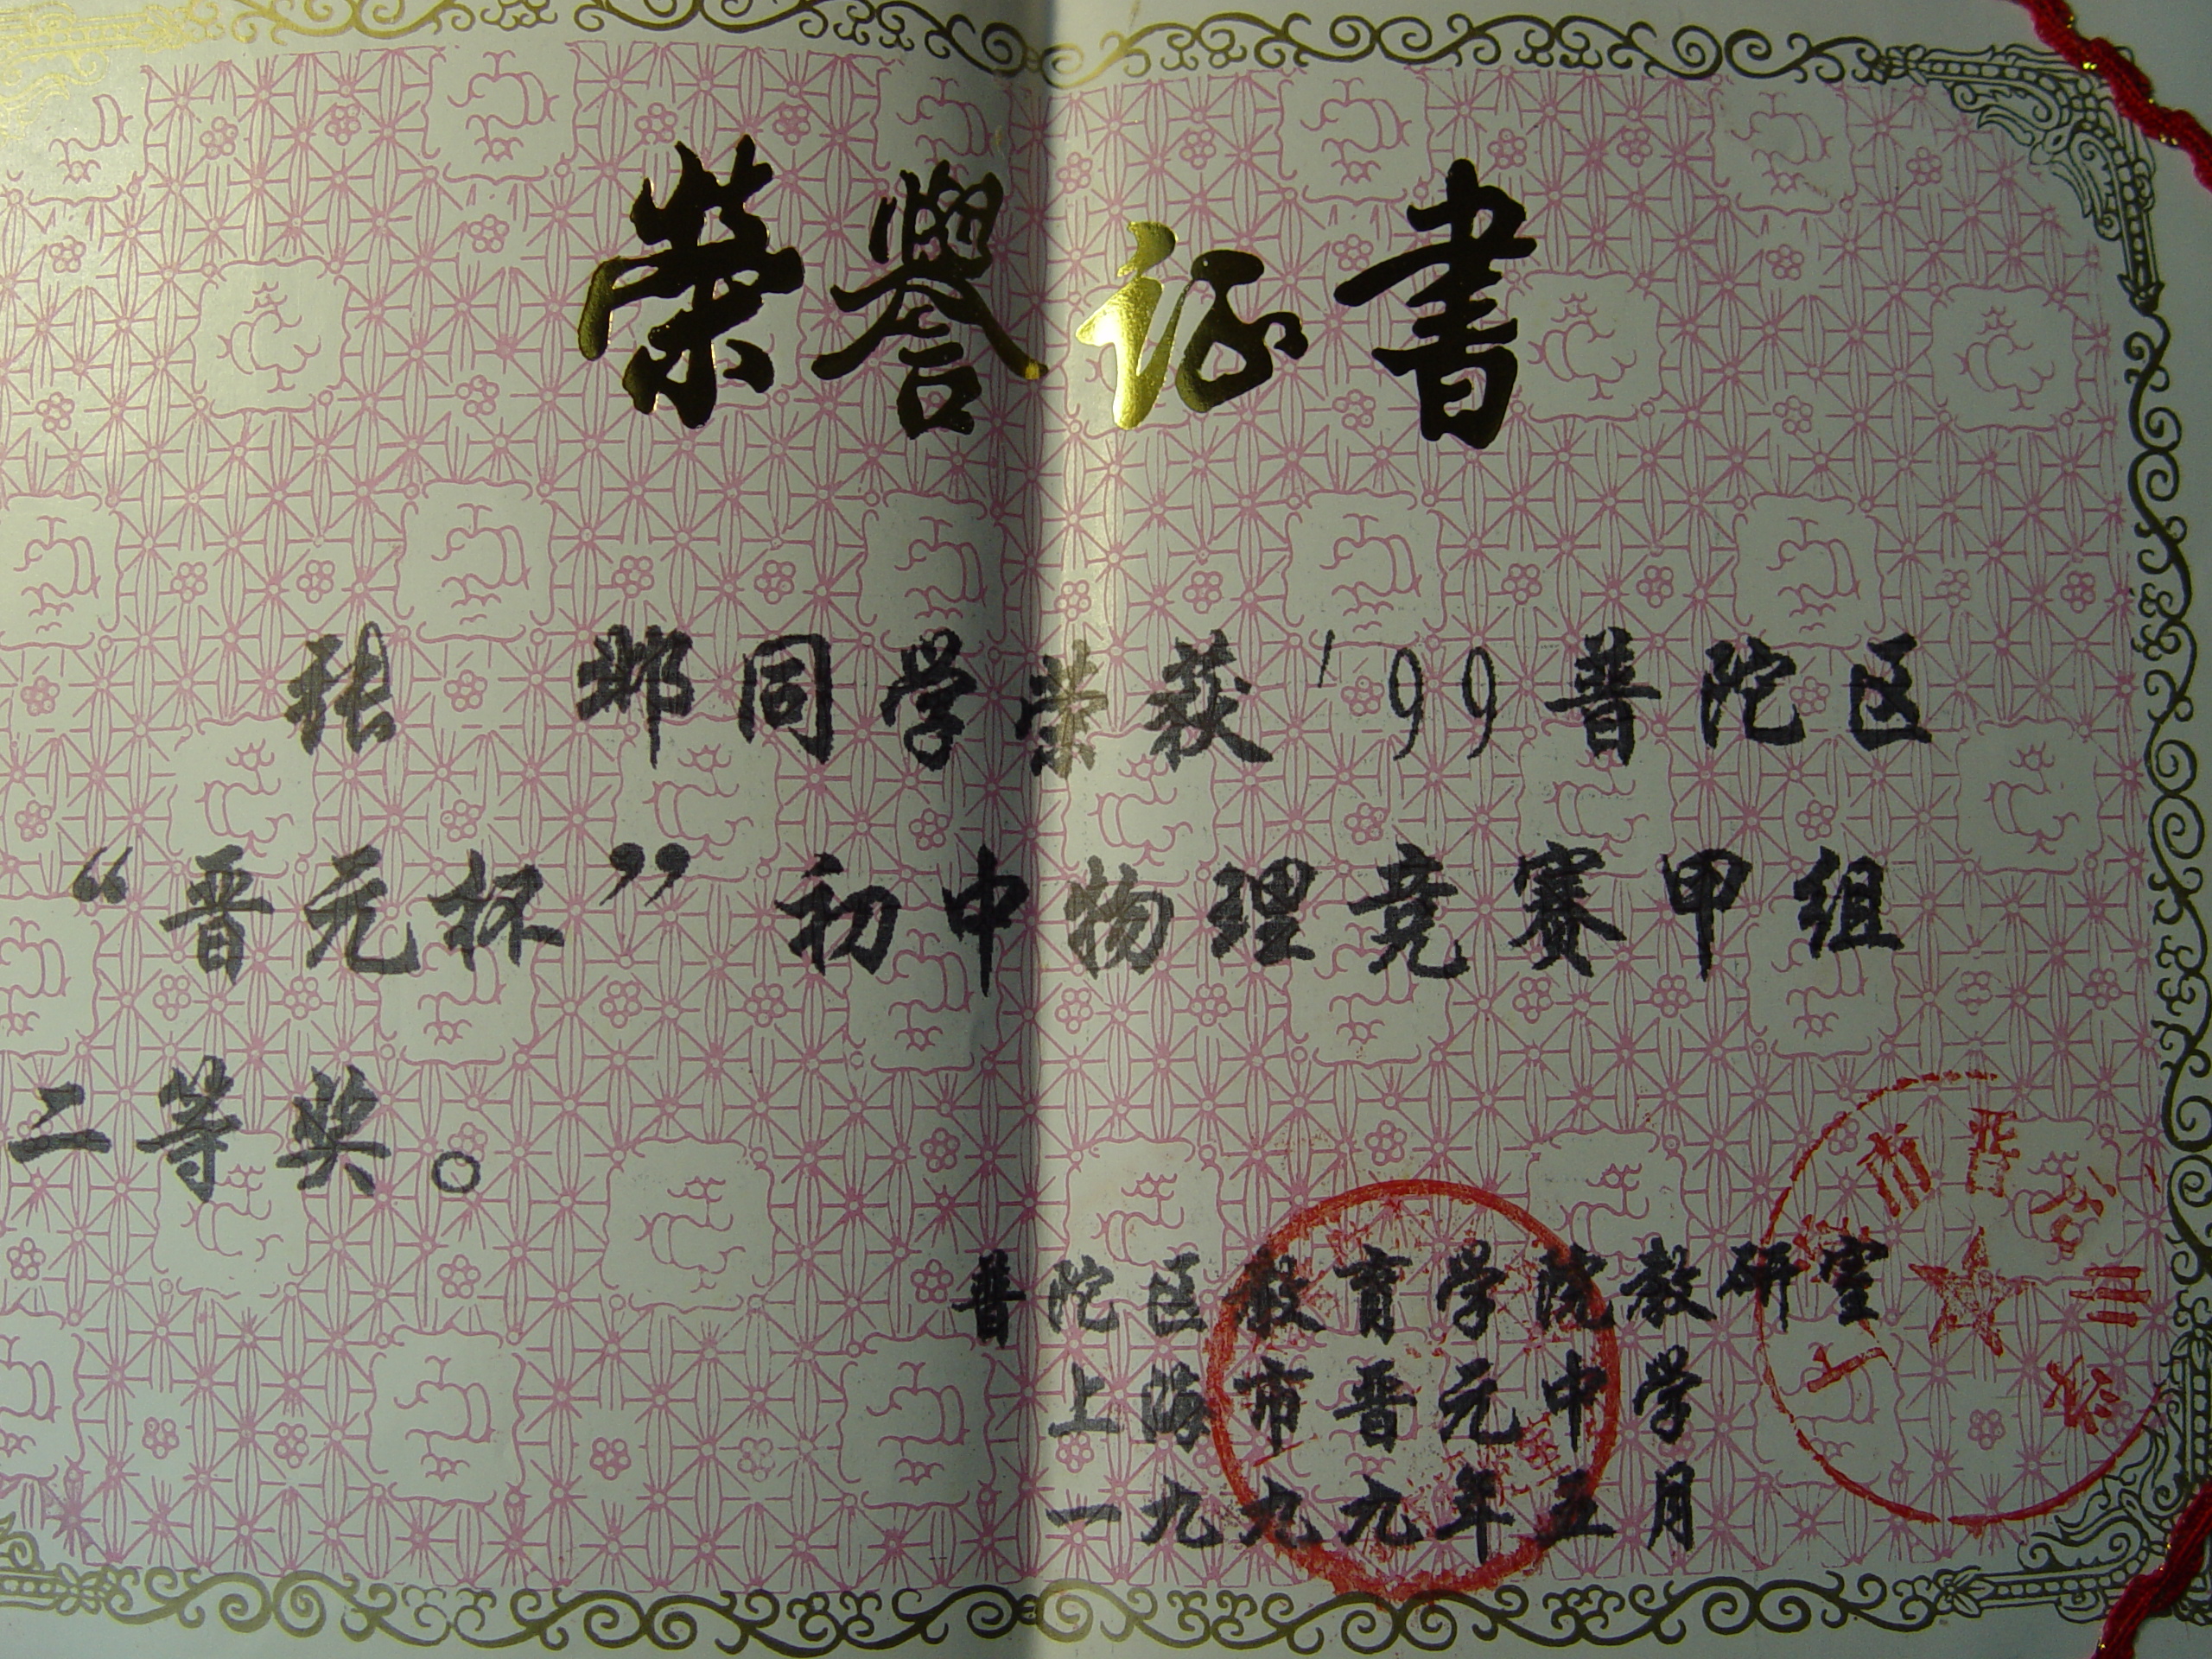 荣譽证书
张 邺同学荣获'99普陀区
“晋元杯”初中物理竞赛甲组
二等奖。
普陀区教育学院教研室
上海市晋元中学
一九九九年五月